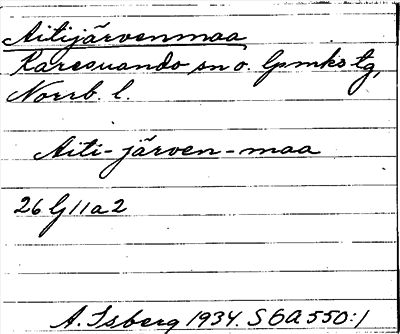 Aitijärvenmaa
Karesuando sn o. lpmks tg,
Norrb. l.
Aiti-järven-maa
26 G 11 a 2
A. Isberg 1934. SOA 550:1